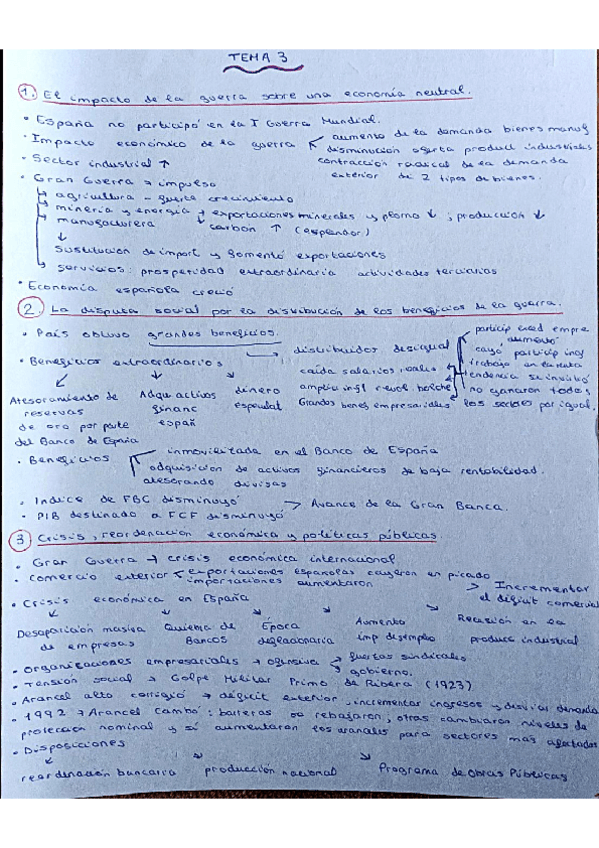 TEMA 3
1. El impacto de la guerra sobre una economía neutral.
• España no participó en la I Guerra Mundial.
• Impacto económico de la guerra aumento de la demanda bienes manuf
disminución oferta product industriales
• Sector industrial ↑ contracción radical de la demanda
exterior de 2 tipos de bienes.
• Gran Guerra → impulso
→ agricultura - fuerte crecimiento
→ minería y energía → exportaciones minerales y plomo ↓ ; producción ↓
→ manufacturera carbón ↑ (esplendor)
↓
Sustitución de import y fomentó exportaciones
→ servicios: prosperidad extraordinaria actividades terciarias
• Economía española creció
2. La disputa social por la distribución de los beneficios de la guerra.
• País obtuvo grandes beneficios.
→ distribuidos desigual
caída salarios reales
Grandes benef empresariales
particip exced empre aumentó
cayó particip
trabajo en la renta
tendencia se invirtió
no ganaron todos
los sectores por igual.
• Beneficios extraordinarios
Atesoramiento de reservas de oro por parte del Banco de España
Adqu activos financ españ
dinero especulat
• Beneficios inmovilizada en el Banco de España
adquisición de activos financieros de baja rentabilidad.
atesorando divisas
• Indice de FBC disminuyó → Avance de la Gran Banca.
• PIB destinado a FCF disminuyó
3. Crisis, reordenación económica y políticas públicas.
• Gran Guerra → crisis económica internacional.
• Comercio exterior exportaciones españolas cayeron en picado
importaciones aumentaron
> Incrementar el déficit comercial
• Crisis económica en España
Desaparición masiva de empresas
Quiebra de Bancos
Época deflacionaria
Aumento imp desempleo
Recesión en la producc industrial
• Organizaciones empresariales → ofensiva fuerzas sindicales
gobierno.
• Tensión social → Golpe Militar Primo de Ribera (1923)
• Arancel alto corrigió → déficit exterior, incrementar ingresos y desviar demanda
• 1992 → Arancel Cambó: barreras se rebajaron, otras cambiaron niveles de
protección nominal y sí aumentaron los aranceles para sectores más afectados
• Disposiciones
reordenación bancaria producción nacional Programa de Obras Públicas